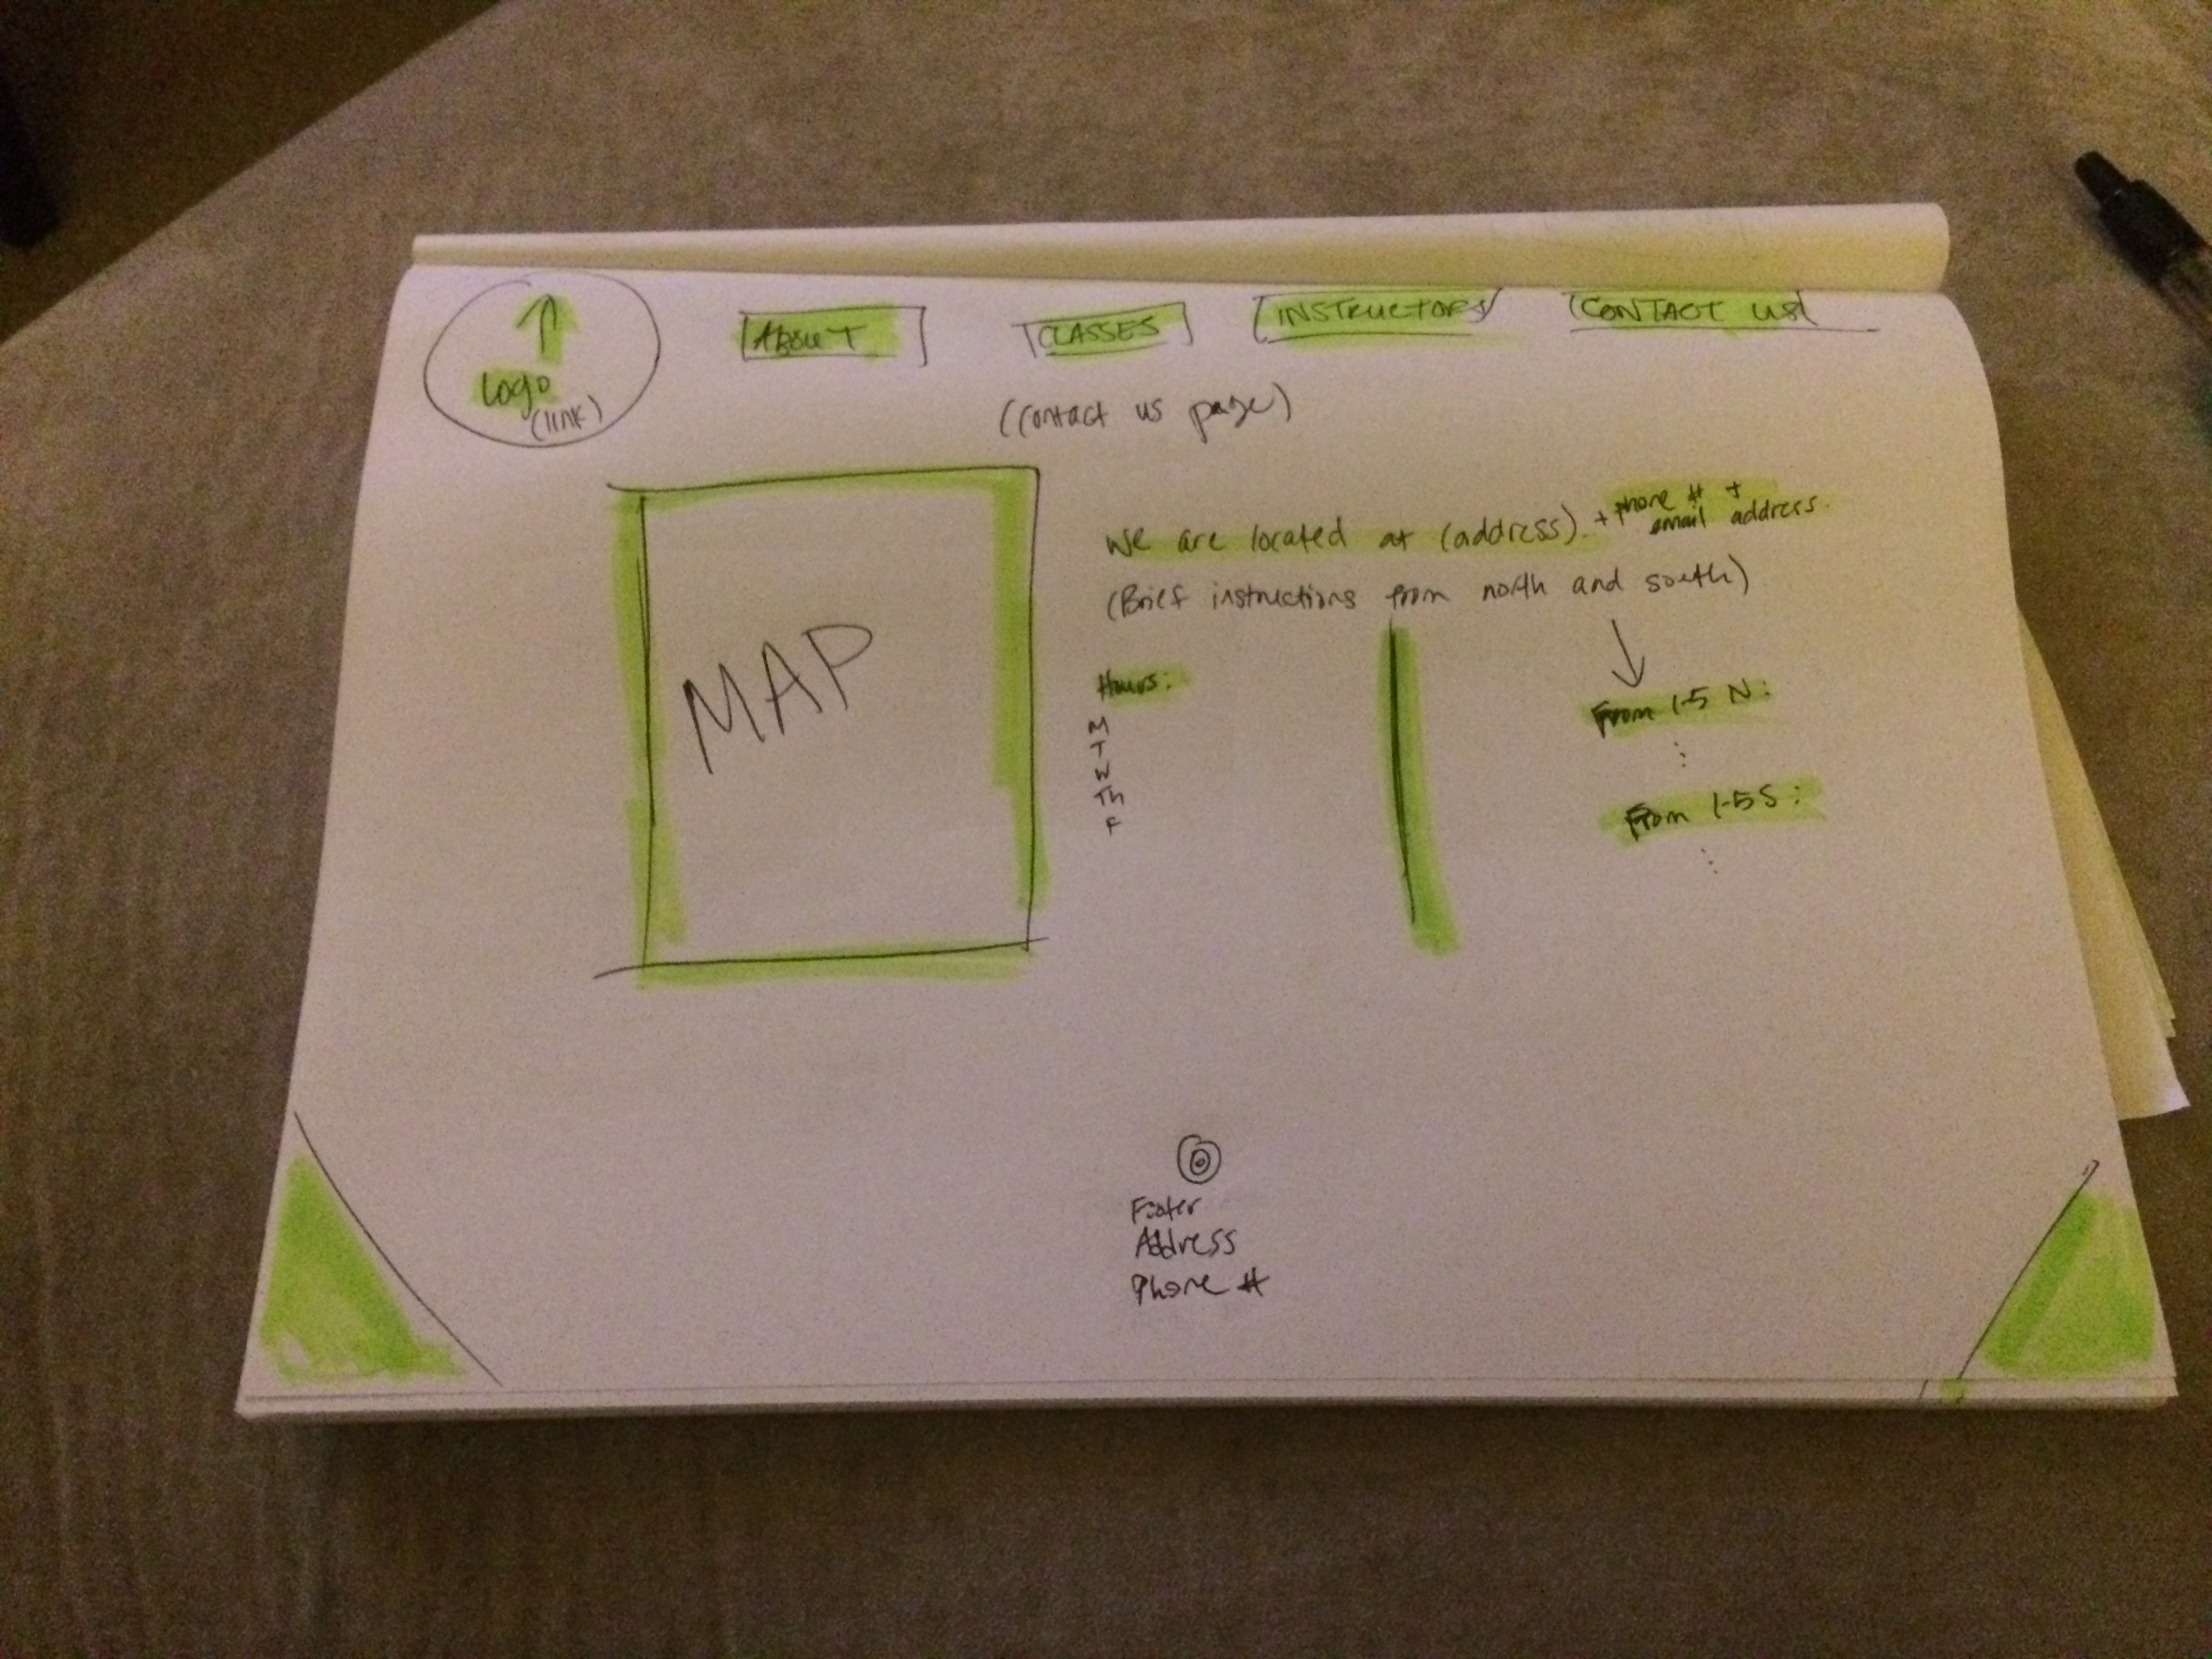 Logo
(link)
ABOUT
CLASSES
INSTRUCTORS
CONTACT US
(contact us page)
MAP
We are located at (address). + phone # +
email address.
(Brief instructions from north and south)
Hours:
M
T
W
Th
F
From I-5 N:
From I-5 S:
Footer
Address
Phone #